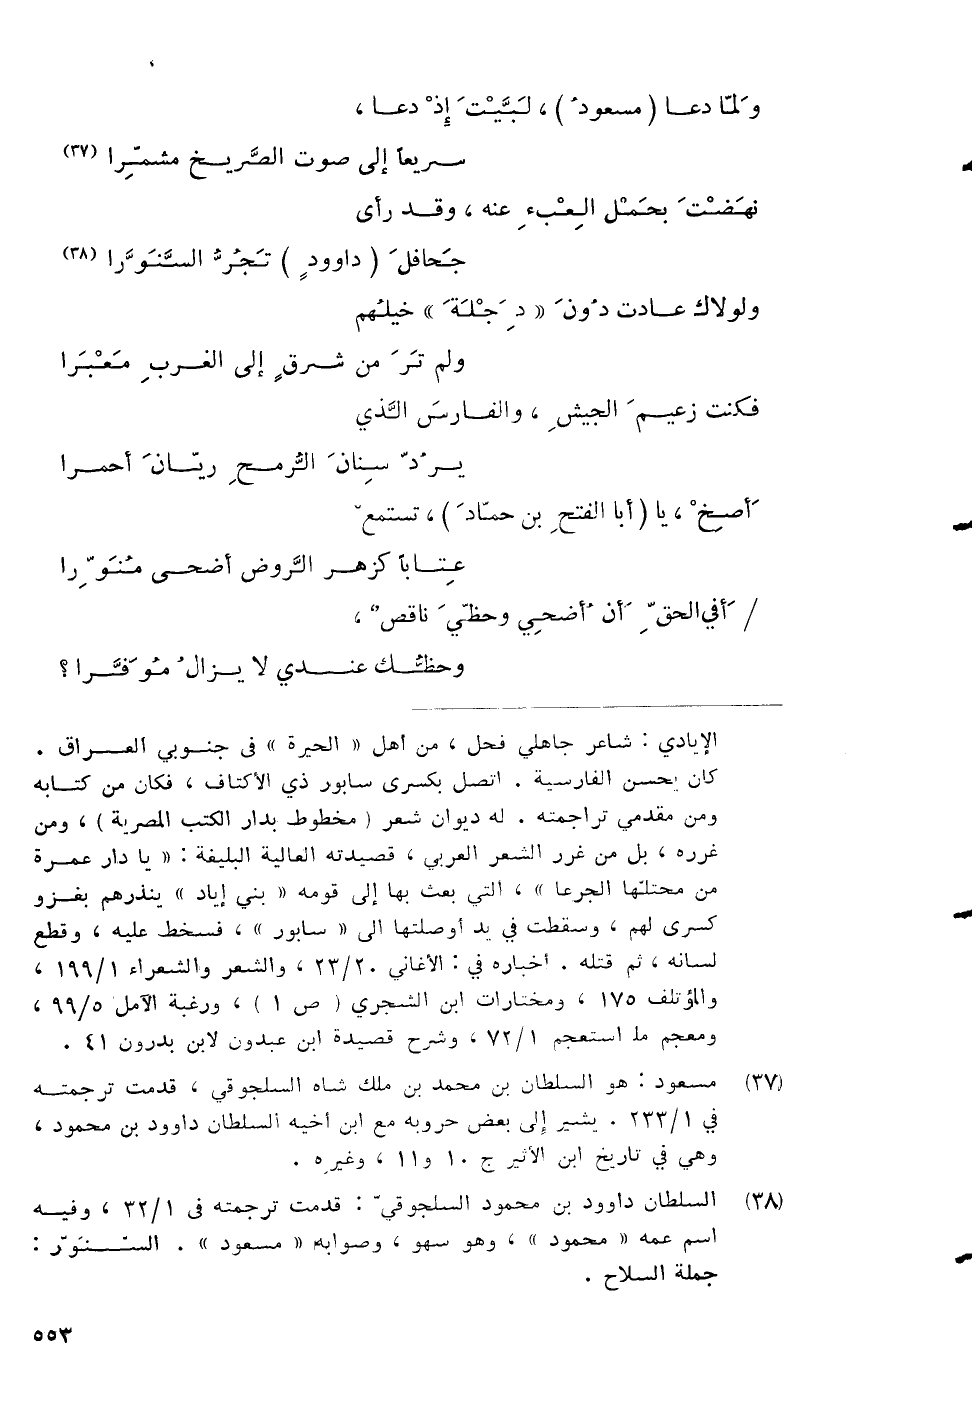 ولَمّا دعا (مسعودُ) ، لَبَّيْتَ إِذْ دعا ،
سريعاً إلى صوت الصَّريخ مشمّرا (٣٧)
نهَضْتَ بحَمْل العِبْءِ عنه ، وقد رأى
جَحافلَ (داوودٍ) تَجُرُّ السَّنَوَّرا (٣٨)
ولولاك عادت دُونَ « دِجْلَةَ » خيلُهم
ولم تَرَ من شرقٍ إلى الغربِ مَعْبَرا
فكنت زعيمَ الجيشِ ، والفارسَ الَّذي
يرُدّ سِنانَ الرُّمحِ ريّانَ أحمرا
أَصِخْ ، يا (أبا الفتحِ بن حمّادَ) ، تستمعْ
عِتاباً كزهر الرَّوض أضحى مُنَوِّرا
/ أَفي الحقِّ أَن أُضحِي وحظّيَ ناقصٌ ،
وحظُّك عندي لا يزالُ مُوَفَّرا ؟
الإيادي : شاعر جاهلي فحل ، من أهل « الحيرة » فى جنوبي العراق .
كان يحسن الفارسية . اتصل بكسرى سابور ذي الأكتاف ، فكان من كتابه
ومن مقدمي تراجمته . له ديوان شعر ( مخطوط بدار الكتب المصرية ) ، ومن
غرره ، بل من غرر الشعر العربي ، قصيدته العالية البليغة : « يا دار عمرة
من محتلّها الجرعا » ، التي بعث بها إلى قومه « بني إياد » ينذرهم بغزو
كسرى لهم ، وسقطت في يد أوصلتها الى « سابور » ، فسخط عليه ، وقطع
لسانه ، ثم قتله . أخباره في : الأغاني ٢٣/٢٠ ، والشعر والشعراء ١٩٩/١ ،
والمؤتلف ١٧٥ ، ومختارات ابن الشجري ( ص ١ ) ، ورغبة الآمل ٩٩/٥ ،
ومعجم ما استعجم ٧٢/١ ، وشرح قصيدة ابن عبدون لابن بدرون ٤١ .
(٣٧) مسعود : هو السلطان بن محمد بن ملك شاه السلجوقي ، قدمت ترجمته
في ٢٣٣/١ . يشير إلى بعض حروبه مع ابن أخيه السلطان داوود بن محمود ،
وهي في تاريخ ابن الأثير ج ١٠ و١١ ، وغيره .
(٣٨) السلطان داوود بن محمود السلجوقيّ : قدمت ترجمته فى ٣٢/١ ، وفيه
اسم عمه « محمود » ، وهو سهو ، وصوابه « مسعود » . السَّنَوَّر :
جملة السلاح .
٥٥٣